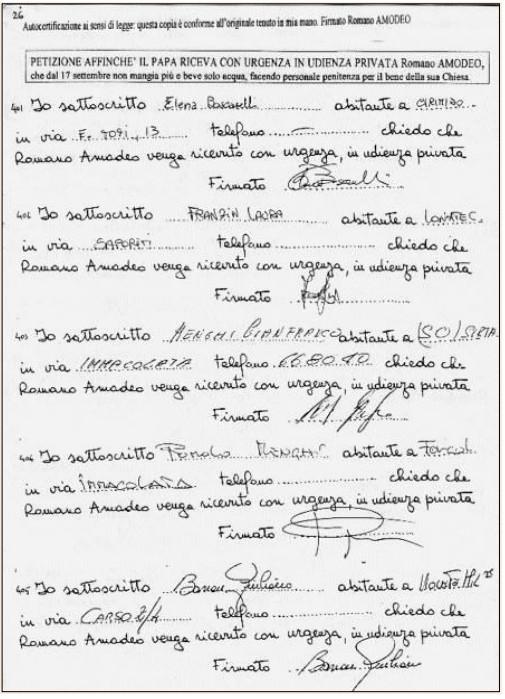 26
Autocertificazione ai sensi di legge: questa copia è conforme all'originale tenuto in mia mano. Firmato Romano AMODEO
PETIZIONE AFFINCHE' IL PAPA RICEVA CON URGENZA IN UDIENZA PRIVATA Romano AMODEO,
che dal 17 settembre non mangia più e beve solo acqua, facendo personale penitenza per il bene della sua Chiesa.
401 Io sottoscritto Elena abitante a
in via 13 telefono chiedo che
Romano Amodeo venga ricevuto con urgenza, in udienza privata
Firmato
402 Io sottoscritto FRANZIN LAURA abitante a
in via SAPORITI telefono chiedo che
Romano Amodeo venga ricevuto con urgenza, in udienza privata
Firmato
403 Io sottoscritto MENGHI GIANFRANCO abitante a (SO)
in via IMMACOLATA telefono 668040 chiedo che
Romano Amodeo venga ricevuto con urgenza, in udienza privata
Firmato
404 Io sottoscritto MENGHI abitante a
in via IMMACOLATA telefono chiedo che
Romano Amodeo venga ricevuto con urgenza, in udienza privata
Firmato
405 Io sottoscritto Giuliano abitante a
in via CARSO telefono chiedo che
Romano Amodeo venga ricevuto con urgenza, in udienza privata
Firmato Giuliano